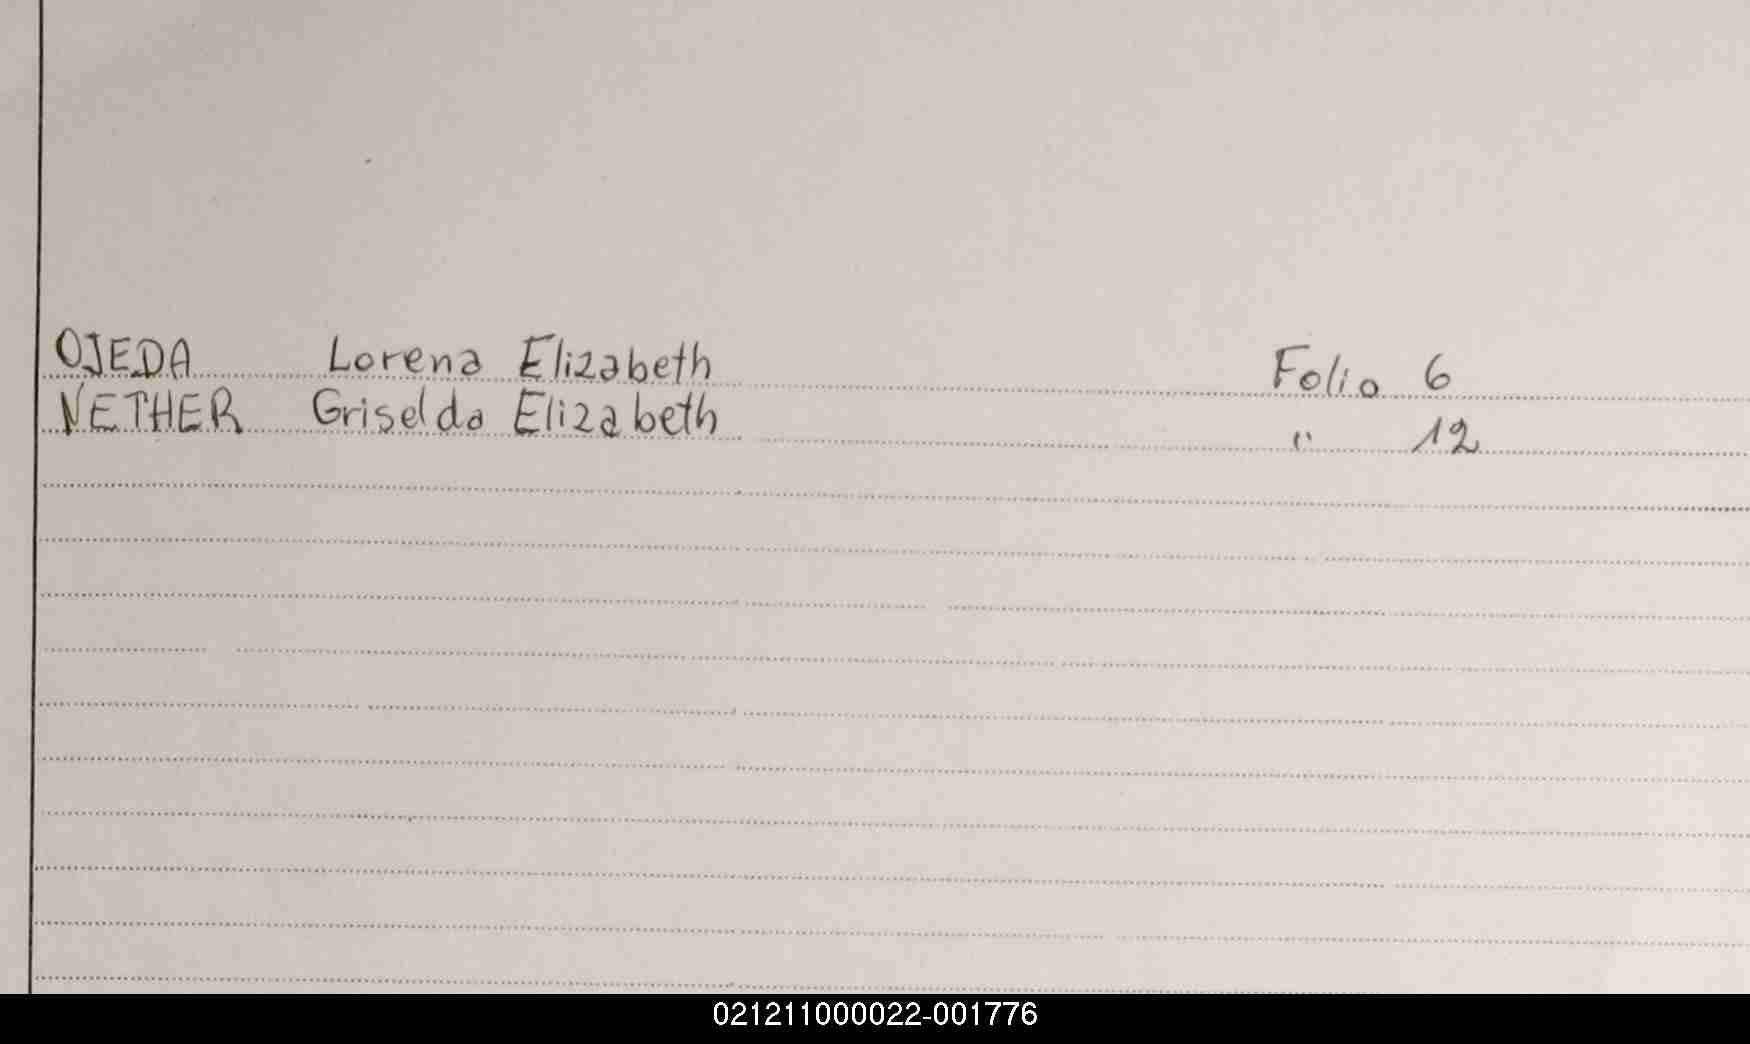 OJEDA Lorena Elizabeth Folio 6
NETHER Griselda Elizabeth " 12
021211000022-001776